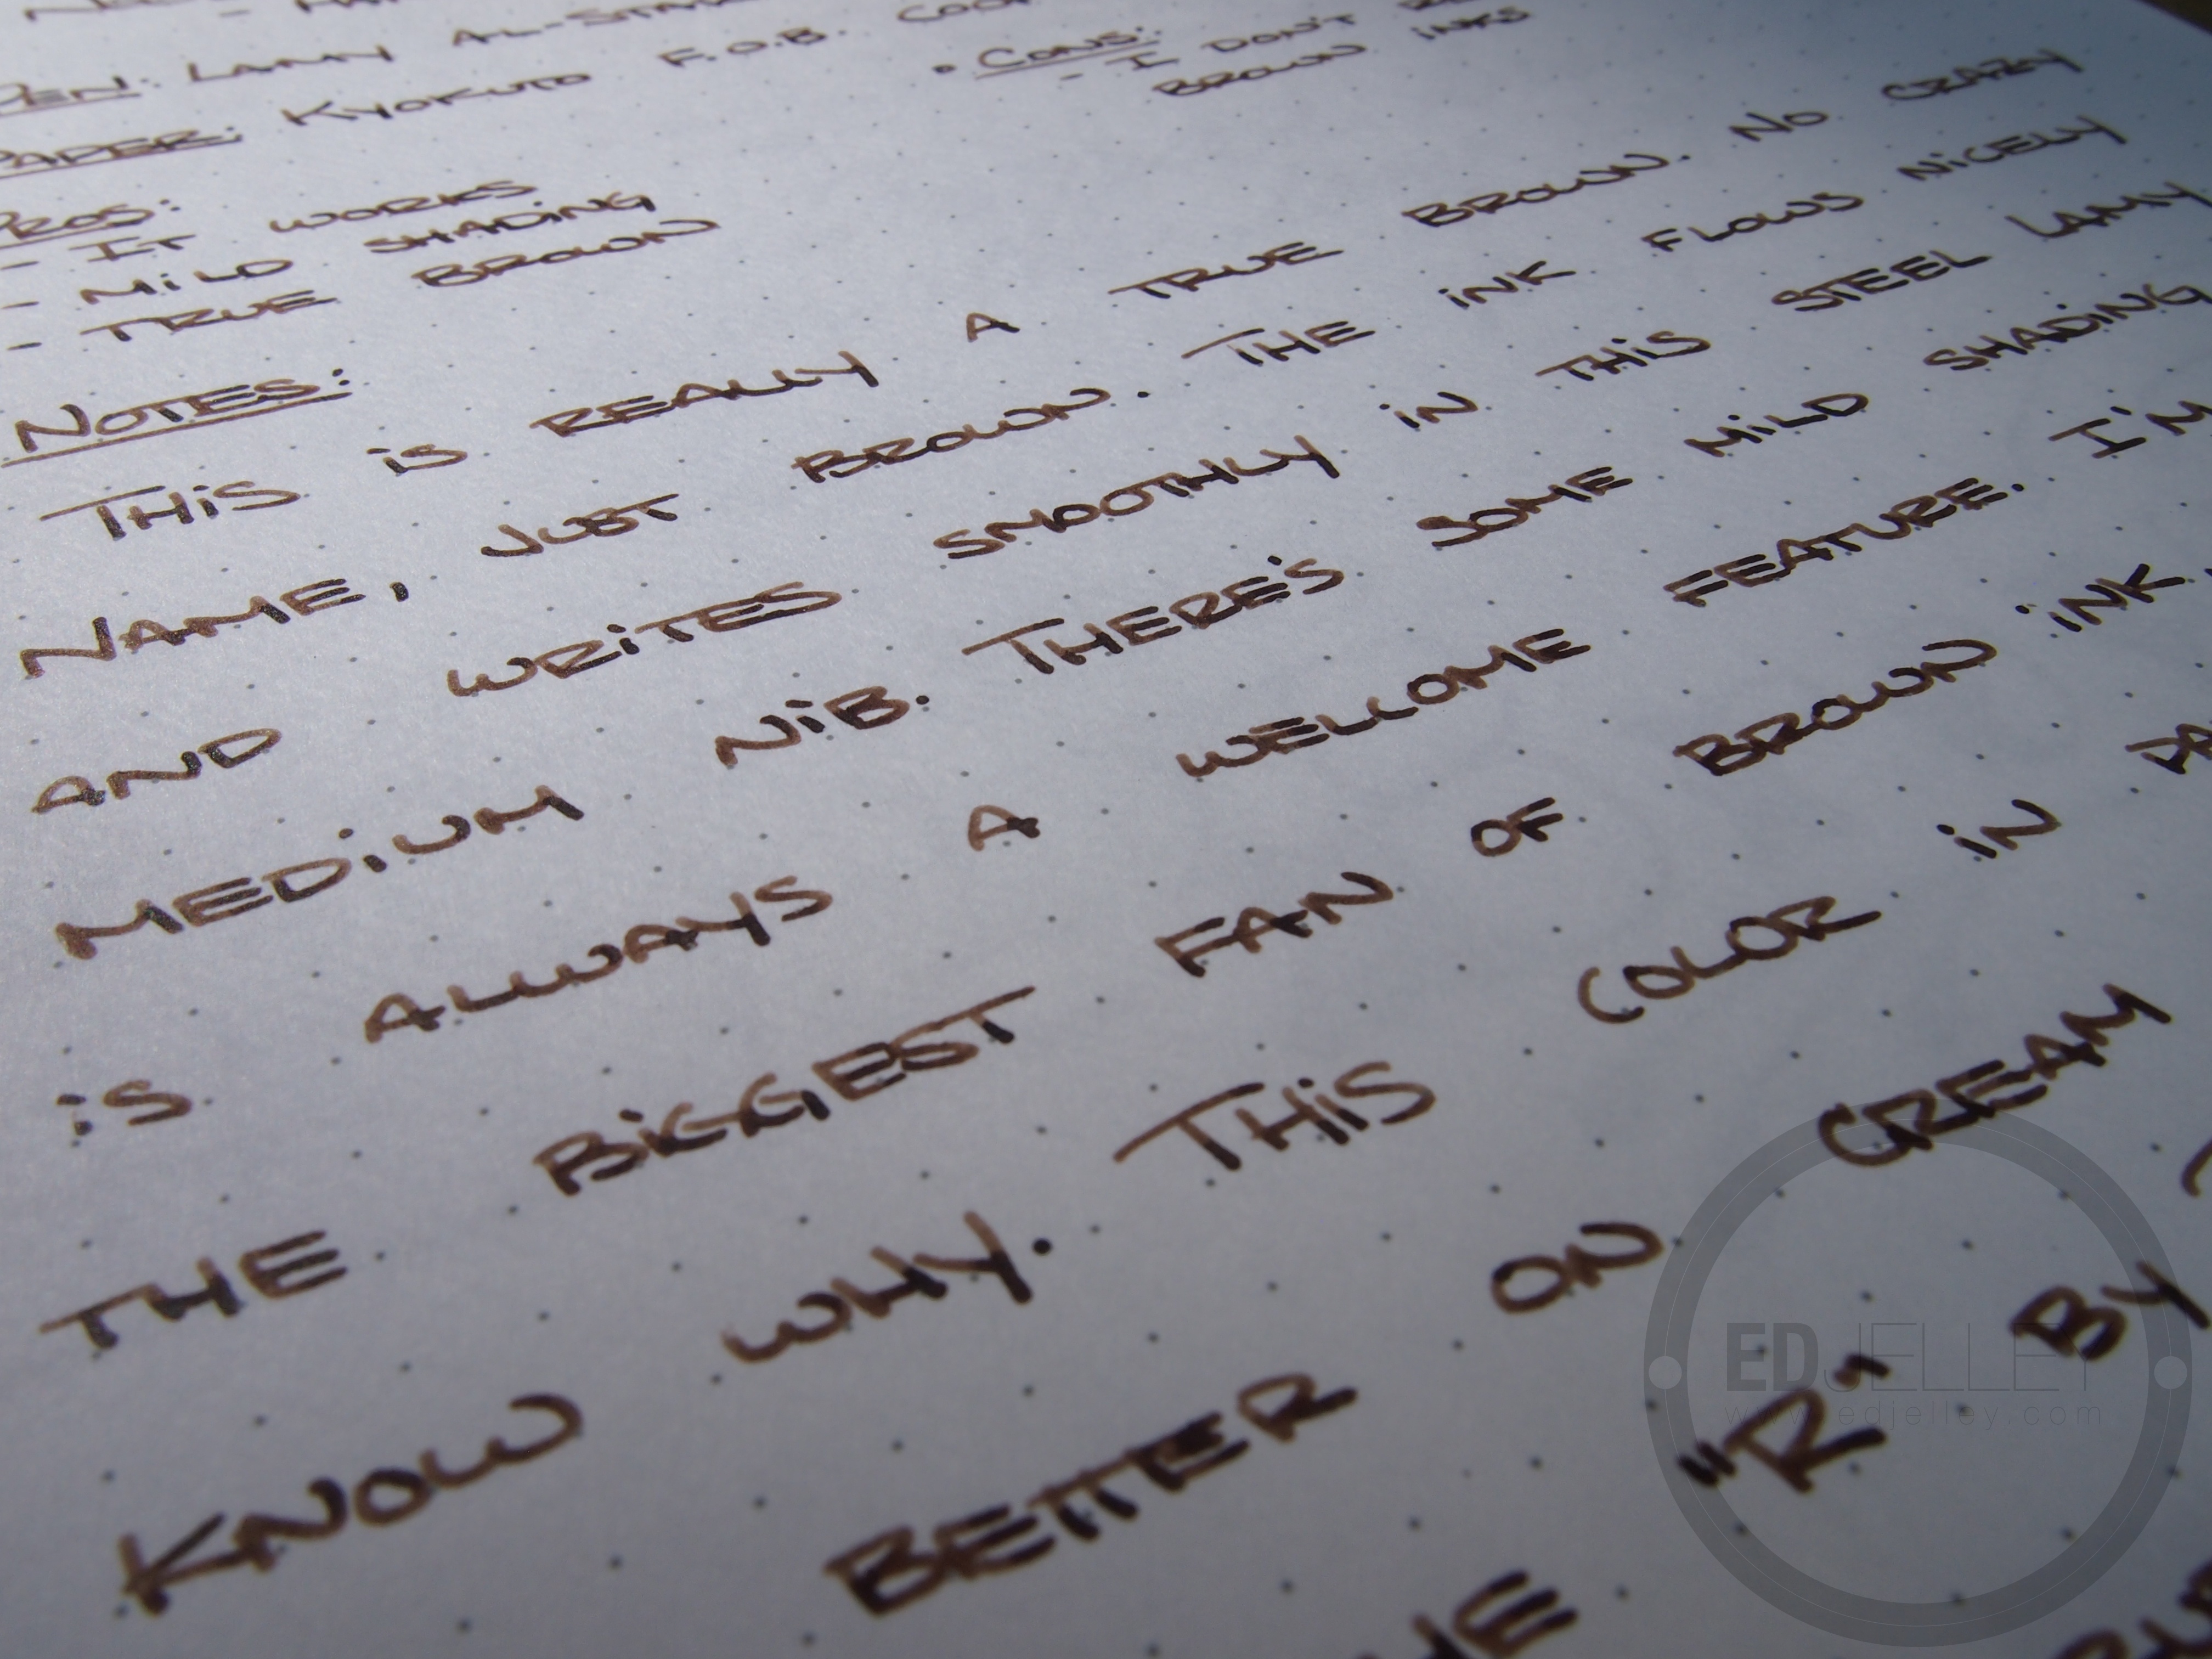 PEN: LAMY
PAPER: KYOKUTO F.O.B.
• CONS:
- I DON'T
BROWN INKS
PROS:
- IT WORKS
- MILD SHADING
- TRUE BROWN
NOTES:
THIS IS REALLY A TRUE BROWN. NO CRAZY
NAME, JUST BROWN. THE INK FLOWS NICELY
AND WRITES SMOOTHLY IN THIS STEEL LAMY
MEDIUM NIB. THERE'S SOME MILD SHADING
IS ALWAYS A WELCOME FEATURE. I'M
THE BIGGEST FAN OF BROWN INK
KNOW WHY. THIS COLOR IN
BETTER ON CREAM
"R" BY
EDJELLEY
www.edjelley.com